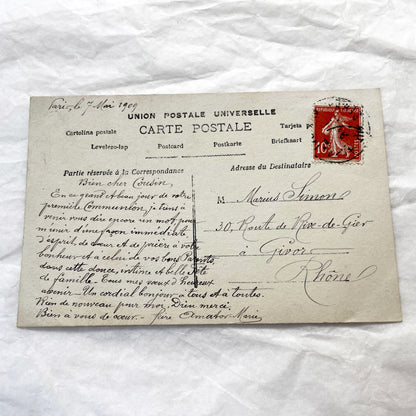 Paris, le 7 Mai 1909
UNION POSTALE UNIVERSELLE
CARTE POSTALE
Cartolina postale
Tarjeta po
Levelezo-lap
Postcard
Postkarte
Briefkaart
Partie réservée à la Correspondance
Adresse du Destinataire
10
Bien cher Cousin,
En ce grand & beau jour de votre
première Communion, je tiens à
venir vous dire encore un mot pour
m'unir d'une façon immédiate
d'esprit, de cœur & de prière à votre
bonheur & à celui de vos bons Parents,
dans cette douce, intime & belle fête
de famille. Tous mes vœux d'heureux
avenir. Un cordial bonjour à tous & à toutes.
Rien de nouveau pour moi, Dieu merci.
Bien à vous de cœur. - frère Amator-Marie
M Marius Simon
30, Route de Rive-de-Gier
à Givors
Rhône